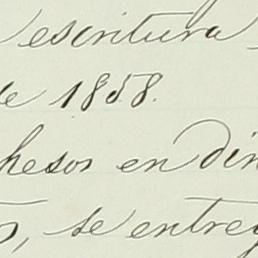 escritura
de 1858.
pesos en din
se entreg